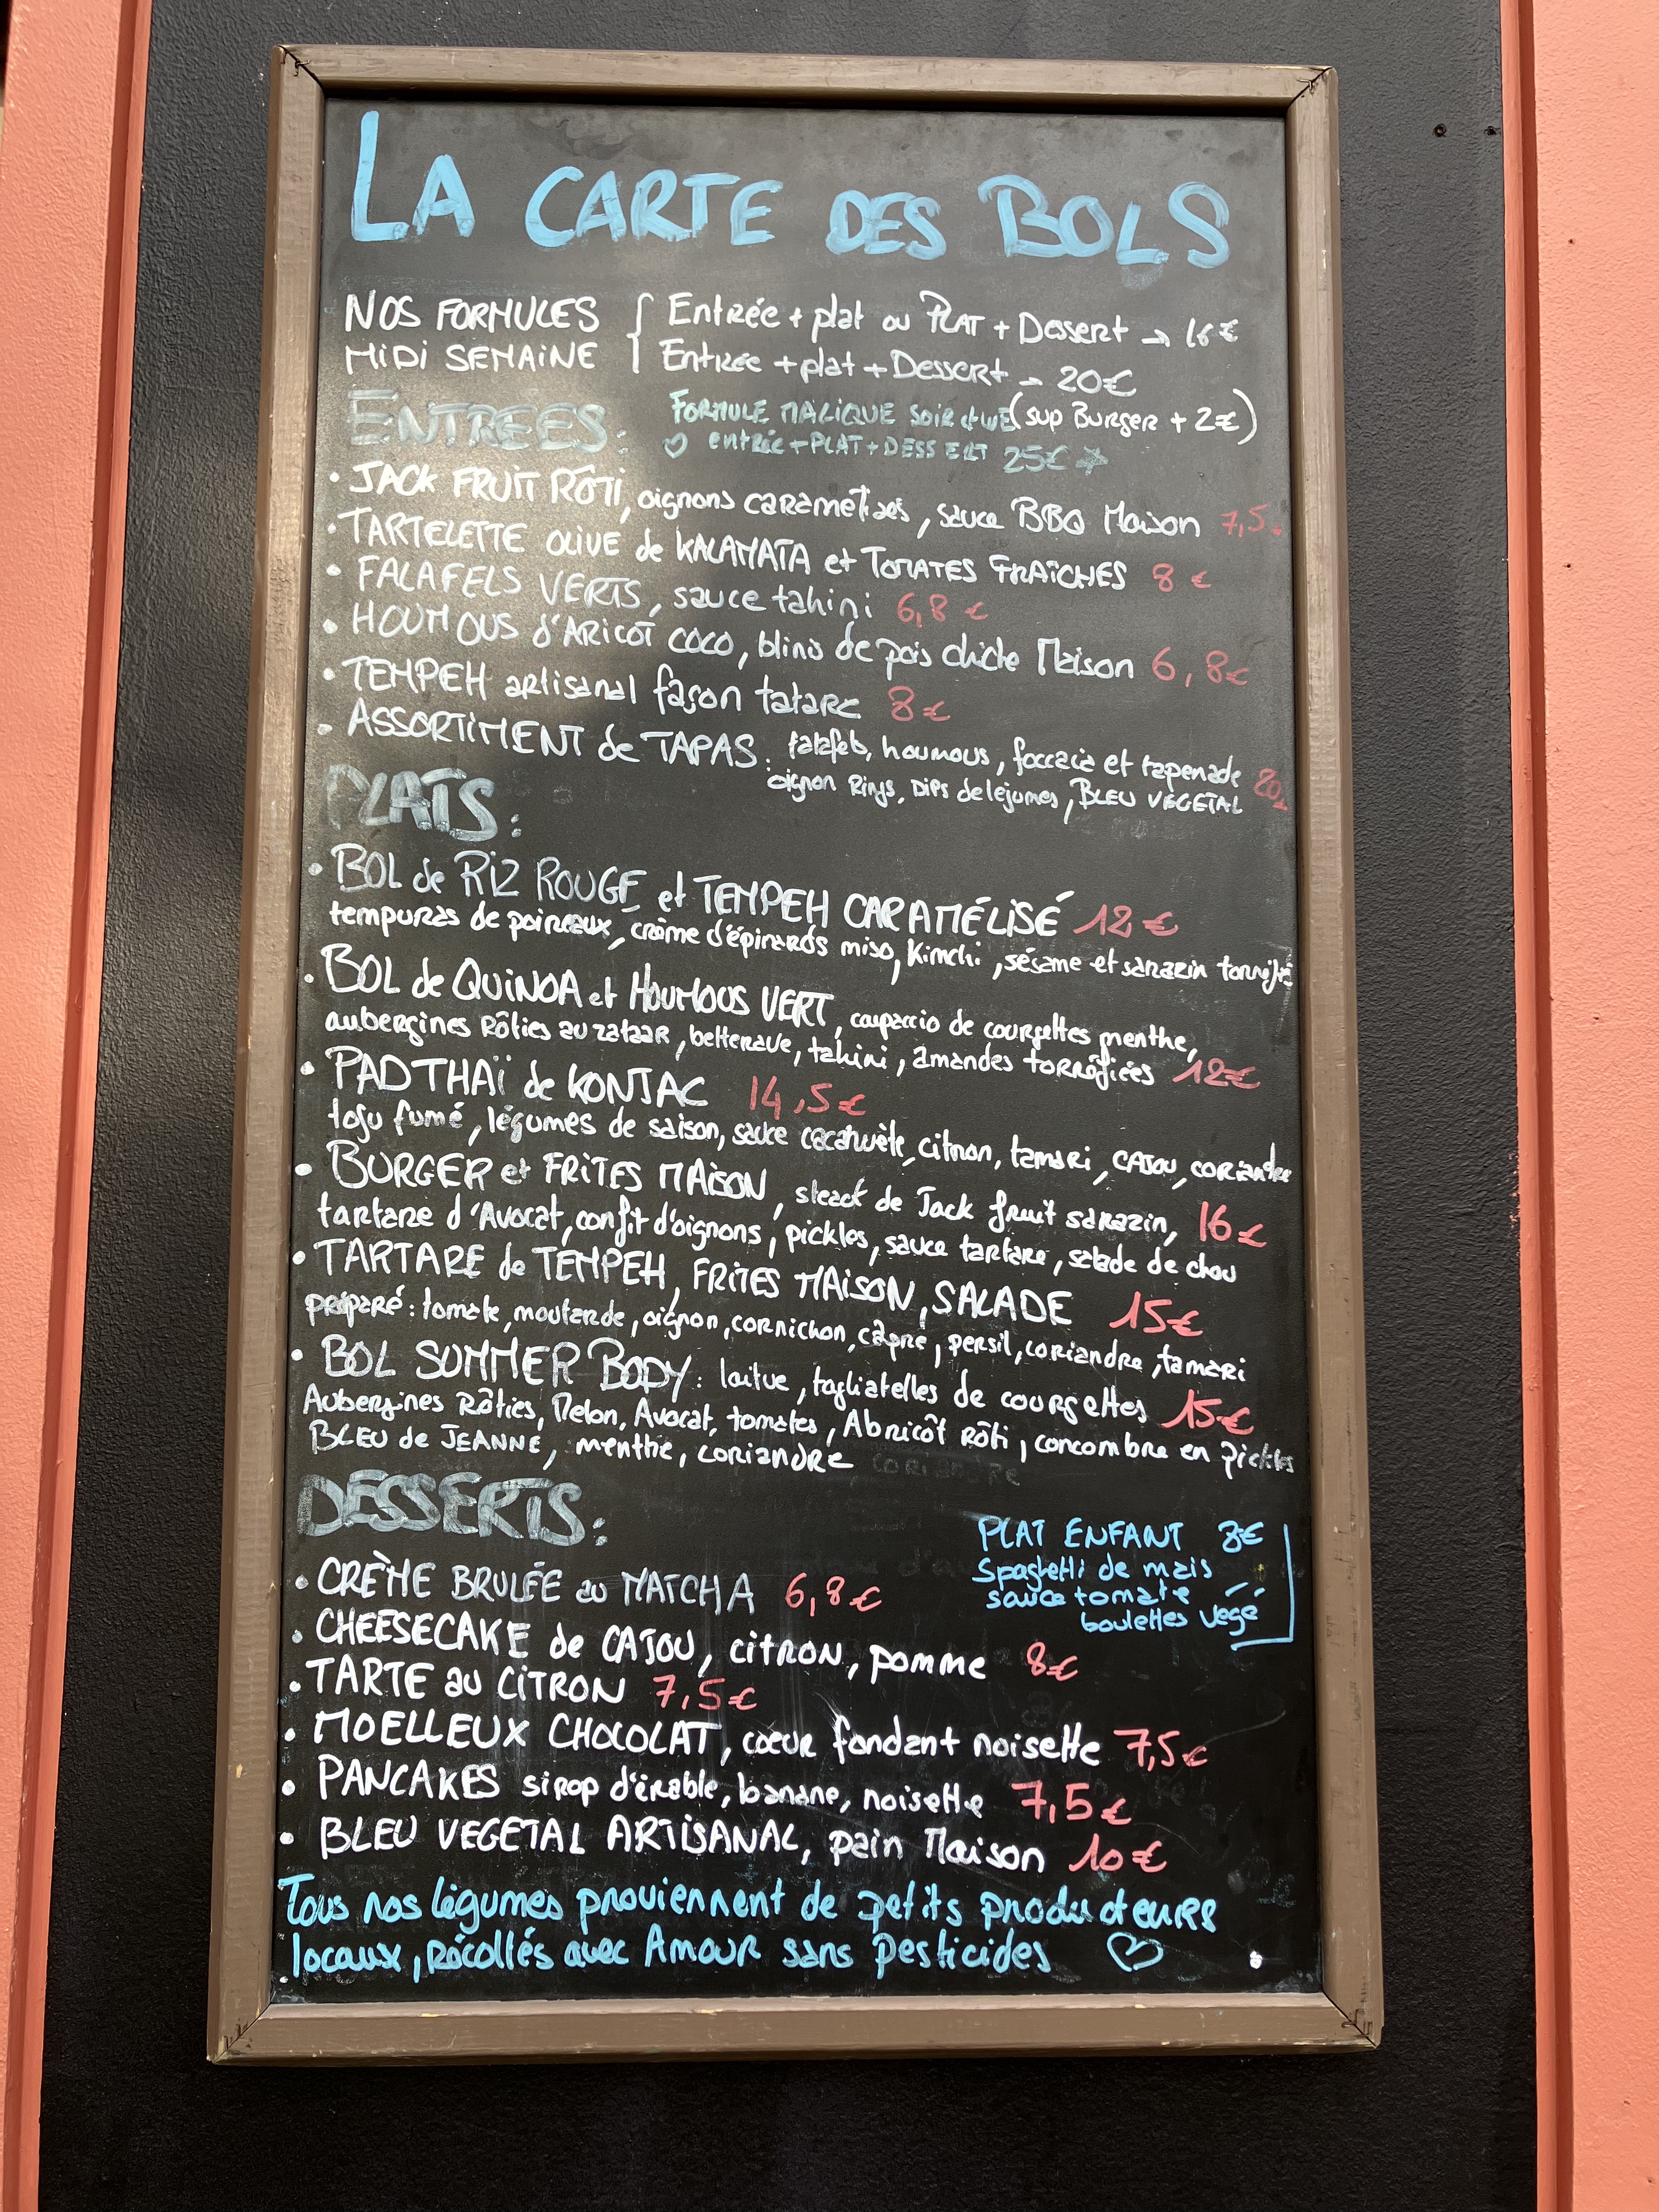 LA CARTE DES BOLS
NOS FORMULES { Entrée + plat ou PLAT + Dessert → 16€
MIDI SEMAINE { Entrée + plat + Dessert → 20€
ENTREES:
FORMULE MAGIQUE SOIR et WE (sup Burger + 2€)
♡ entrée + PLAT + DESSERT 25€ ☆
• JACK FRUIT RÔTI, oignons caramélisés, sauce BBQ Maison 7,5
• TARTELETTE OLIVE de KALAMATA et TOMATES FRAÎCHES 8 €
• FALAFELS VERTS, sauce tahini 6,8 €
• HOUMOUS d'ARICOT COCO, blinis de pois chiche Maison 6,8€
• TEMPEH artisanal façon tatare 8€
• ASSORTIMENT de TAPAS: falafels, houmous, foccacia et tapenade 20
oignon Rings, Dips de légumes, BLEU VEGETAL
PLATS:
• BOL de RIZ ROUGE et TEMPEH CARAMÉLISÉ 12€
tempuras de poireaux, crème d'épinards miso, Kimchi, sésame et sarazin torréfié
• BOL de QUINOA et HOUMOUS VERT, caupaccio de courgettes menthe,
aubergines Rôties au zataar, betterave, tahini, amandes torréfiées 12€
• PAD THAÏ de KONJAC 14,5€
tofu fumé, légumes de saison, sauce cacahuète, citron, tamari, CAJOU, coriandre
• BURGER et FRITES MAISON, steack de Jack fruit sarazin, 16€
tartare d'Avocat, confit d'oignons, pickles, sauce tartare, salade de chou
• TARTARE de TEMPEH, FRITES MAISON, SALADE 15€
préparé: tomate, moutarde, oignon, cornichon, câpre, persil, coriandre, tamari
• BOL SUMMER BODY: laitue, tagliatelles de courgettes 15€
Aubergines Rôties, Melon, Avocat, tomates, Abricôt rôti, concombre en pickles
BLEU de JEANNE, menthe, coriandre
DESSERTS:
PLAT ENFANT 8€
Spaghetti de mais
sauce tomate
boulettes végé
• CRÈME BRULÉE au MATCHA 6,8€
• CHEESECAKE de CAJOU, citron, pomme 8€
• TARTE au CITRON 7,5€
• MOELLEUX CHOCOLAT, cœur fondant noisette 7,5€
• PANCAKES sirop d'érable, banane, noisette 7,5€
• BLEU VEGETAL ARTISANAL, pain Maison 10€
Tous nos légumes proviennent de petits producteurs
locaux, Récoltés avec Amour sans pesticides ♡